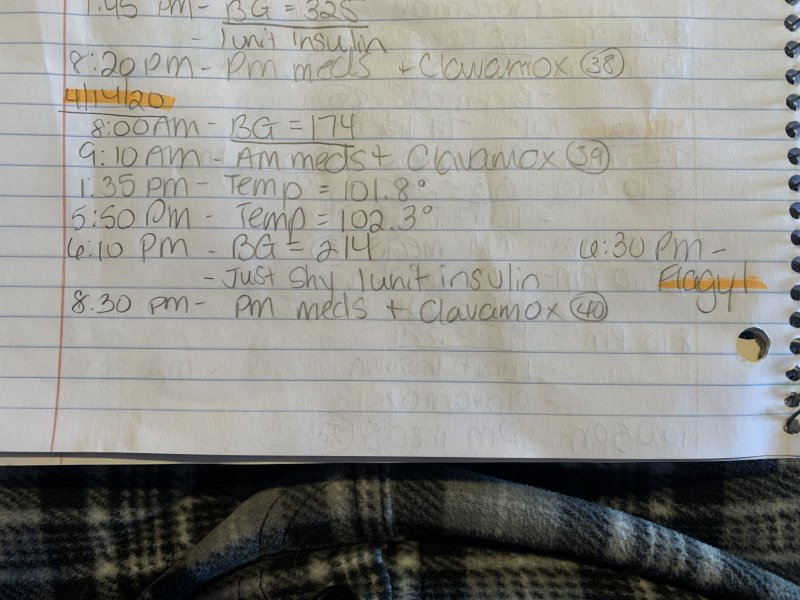 1:45 PM - BG = 325
- 1 unit insulin
8:20 pm - Pm meds + Clavamox 38
4/14/20
8:00 AM - BG = 174
9:10 AM - AM meds + Clavamox 39
1:35 pm - Temp = 101.8°
5:50 Pm - Temp = 102.3°
6:10 PM - BG = 214 6:30 PM -
- Just shy 1 unit insulin Flagyl
8:30 pm - PM meds + Clavamox 40